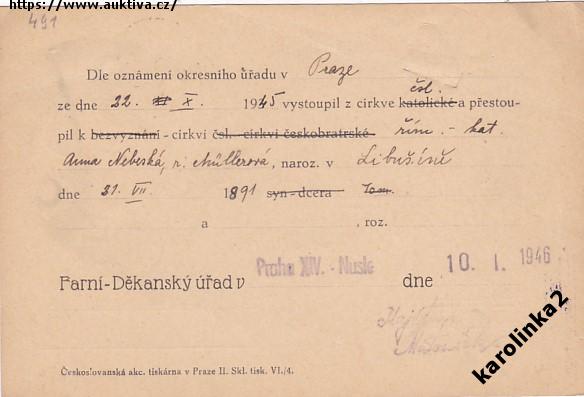 https://www.auktiva.cz/
491
Dle oznámení okresního úřadu v Praze
čsl.
ze dne 22. X. 1945 vystoupil z církve katolické a přestou-
pil k bezvyznání - církvi čsl. - církvi českobratrské řím. - kat.
Anna Nebeská, r. Müllerová, naroz. v Libušíně
dne 31. VII. 1891 syn - dcera
a , roz.
Farní-Děkanský úřad v Praha XIV. - Nusle dne 10. I. 1946
Československá akc. tiskárna v Praze II. Skl. tisk. VI./4.
karolinka2